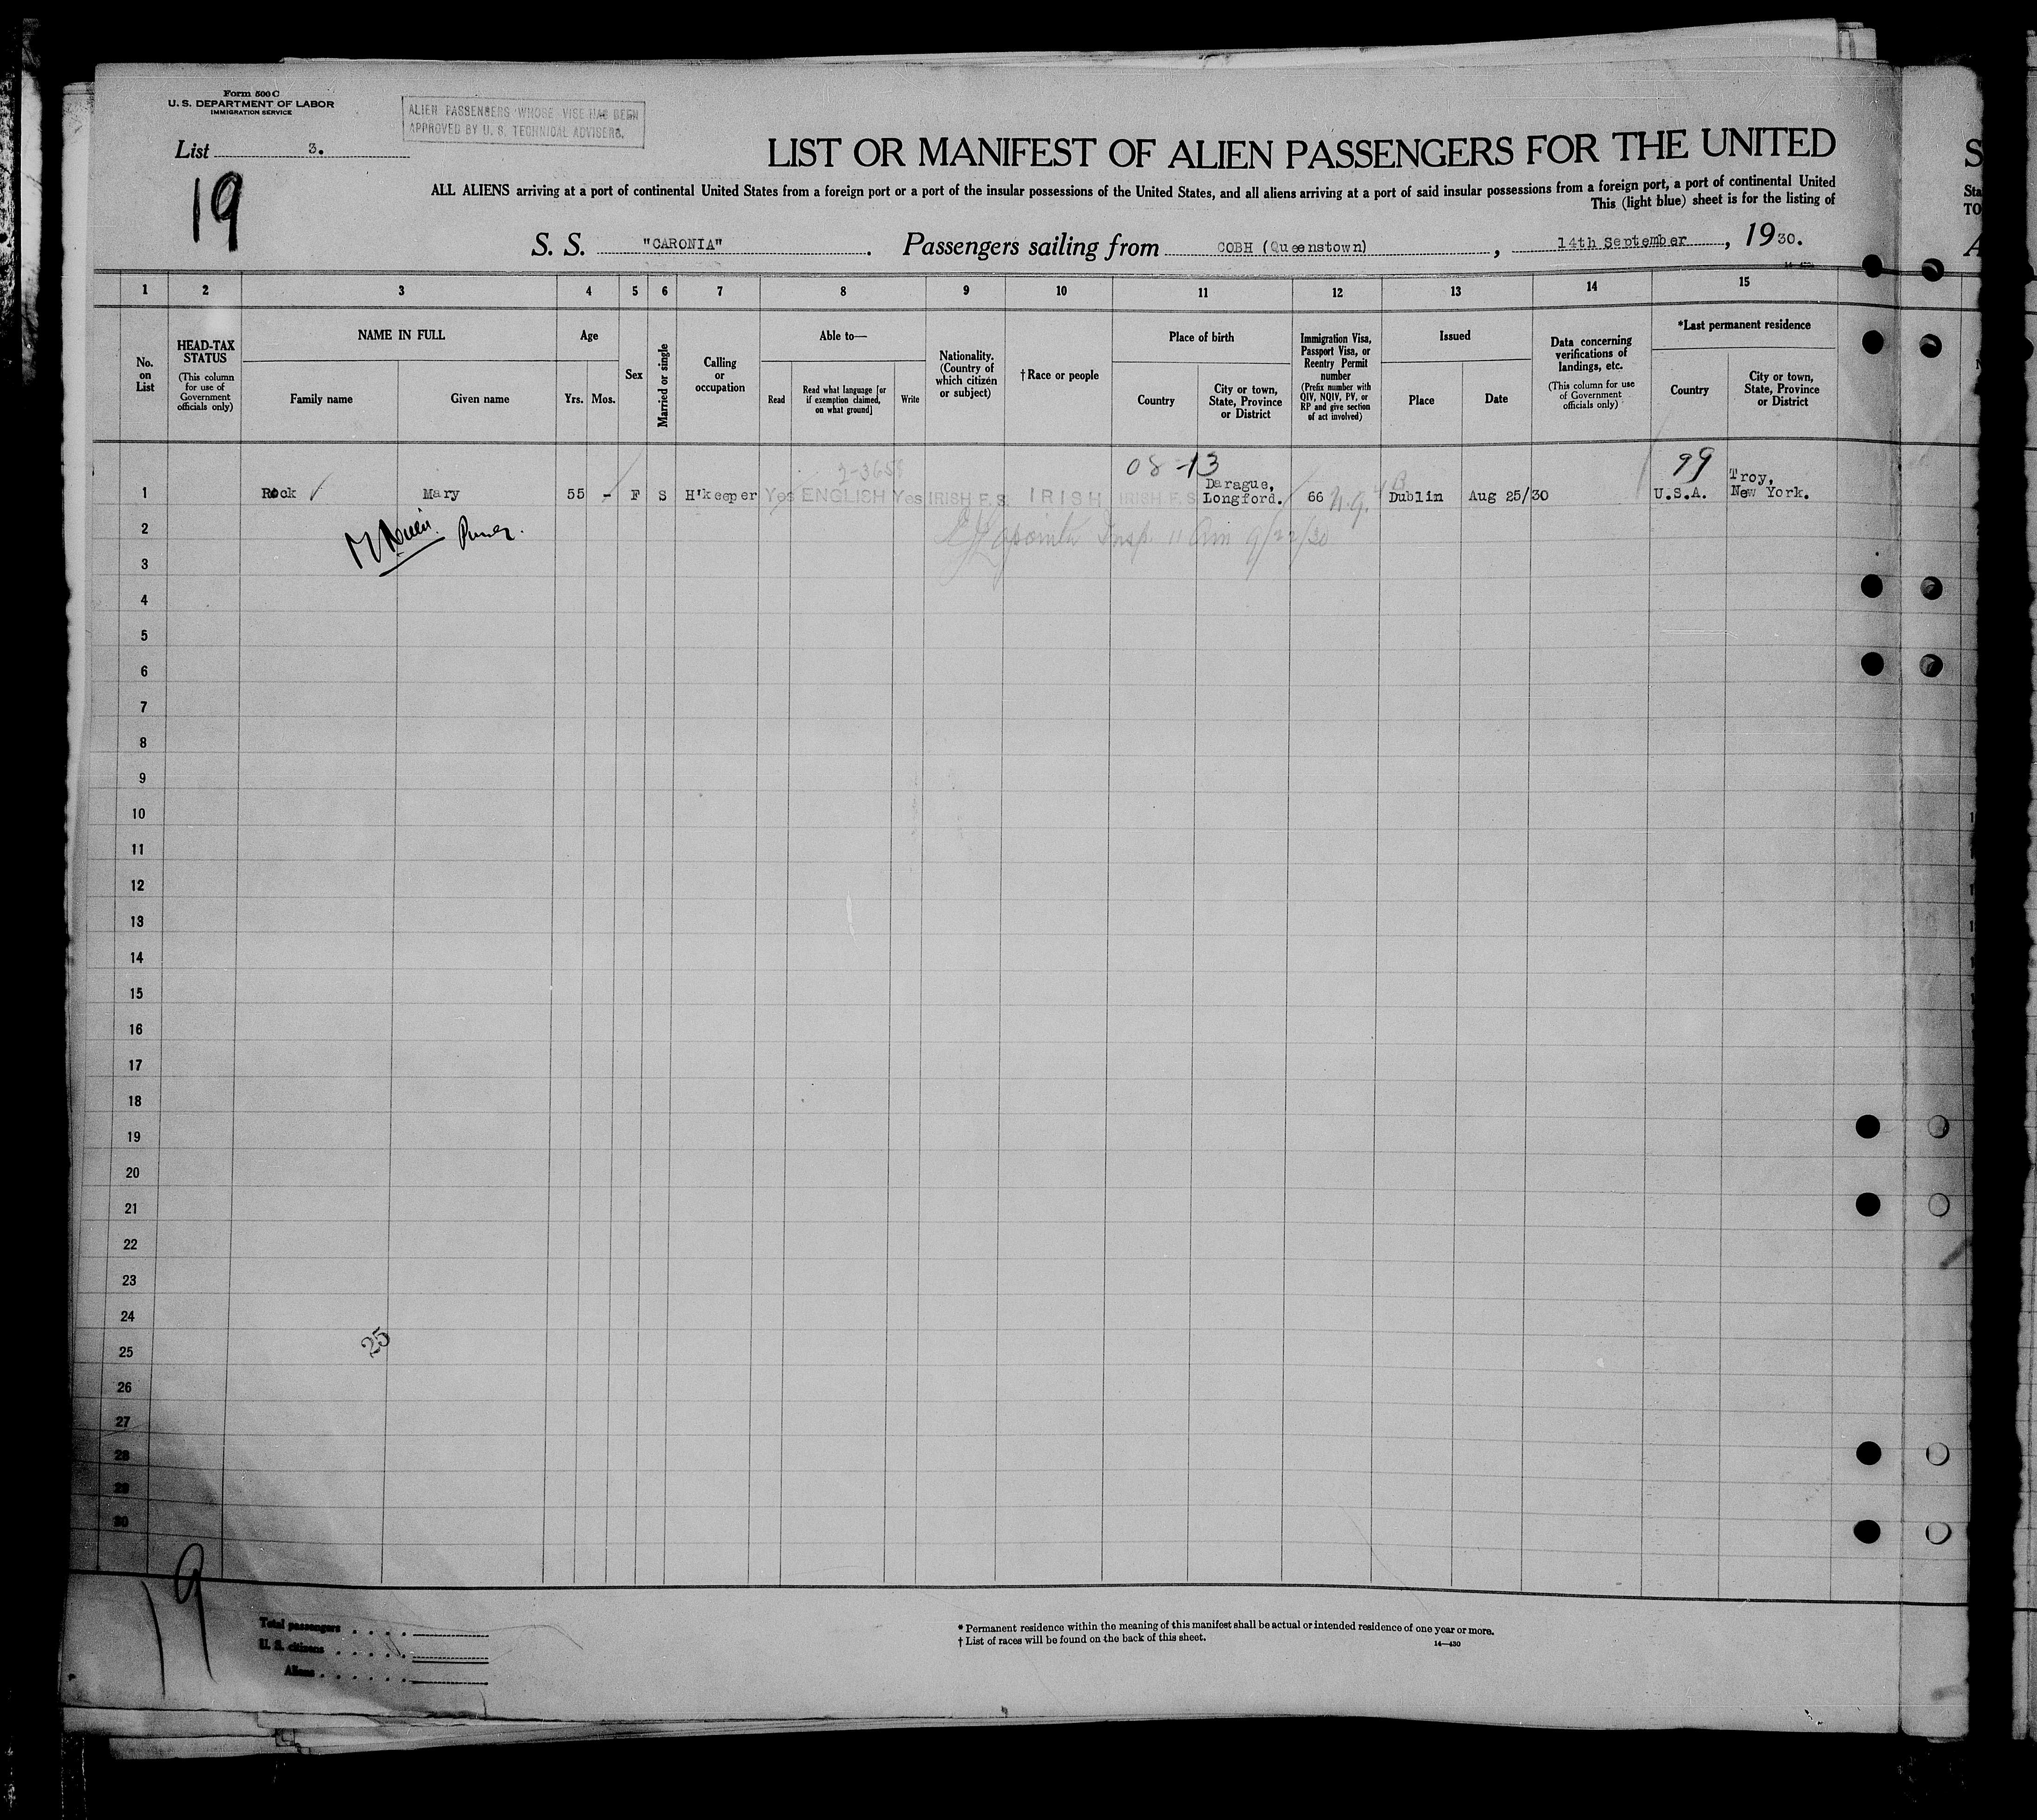 Form 500 C
U. S. DEPARTMENT OF LABOR
IMMIGRATION SERVICE
ALIEN PASSENGERS WHOSE VISE HAS BEEN
APPROVED BY U. S. TECHNICAL ADVISERS.
List 3.
19
LIST OR MANIFEST OF ALIEN PASSENGERS FOR THE UNITED
S
ALL ALIENS arriving at a port of continental United States from a foreign port or a port of the insular possessions of the United States, and all aliens arriving at a port of said insular possessions from a foreign port, a port of continental United
Sta
This (light blue) sheet is for the listing of
TO
S. S. "CARONIA". Passengers sailing from COBH (Queenstown), 14th September, 1930.
A
1 2 3 4 5 6 7 8 9 10 11 12 13 14 15
No. on List
HEAD-TAX STATUS
(This column for use of Government officials only)
NAME IN FULL
Family name
Given name
Age
Yrs. Mos.
Sex
Married or single
Calling or occupation
Able to—
Read
Read what language [or if exemption claimed, on what ground]
Write
Nationality. (Country of which citizen or subject)
†Race or people
Place of birth
Country
City or town, State, Province or District
Immigration Visa, Passport Visa, or Reentry Permit number
(Prefix number with QIV, NQIV, PV, or RP and give section of act involved)
Issued
Place
Date
Data concerning verifications of landings, etc.
(This column for use of Government officials only)
*Last permanent residence
Country
City or town, State, Province or District
08-13
99
1 Rock Mary 55 - F S H'keeper Yes ENGLISH Yes IRISH F.S. IRISH IRISH F.S. Darague, Longford. 66 Dublin Aug 25/30 U.S.A. Troy, New York.
Insp. 11 Am 9/22/30
2
3
4
5
6
7
8
9
10
11
12
13
14
15
16
17
18
19
20
21
22
23
24
25
25
26
27
28
29
30
19
Total passengers
U. S. citizens
Aliens
* Permanent residence within the meaning of this manifest shall be actual or intended residence of one year or more.
† List of races will be found on the back of this sheet.
14—430